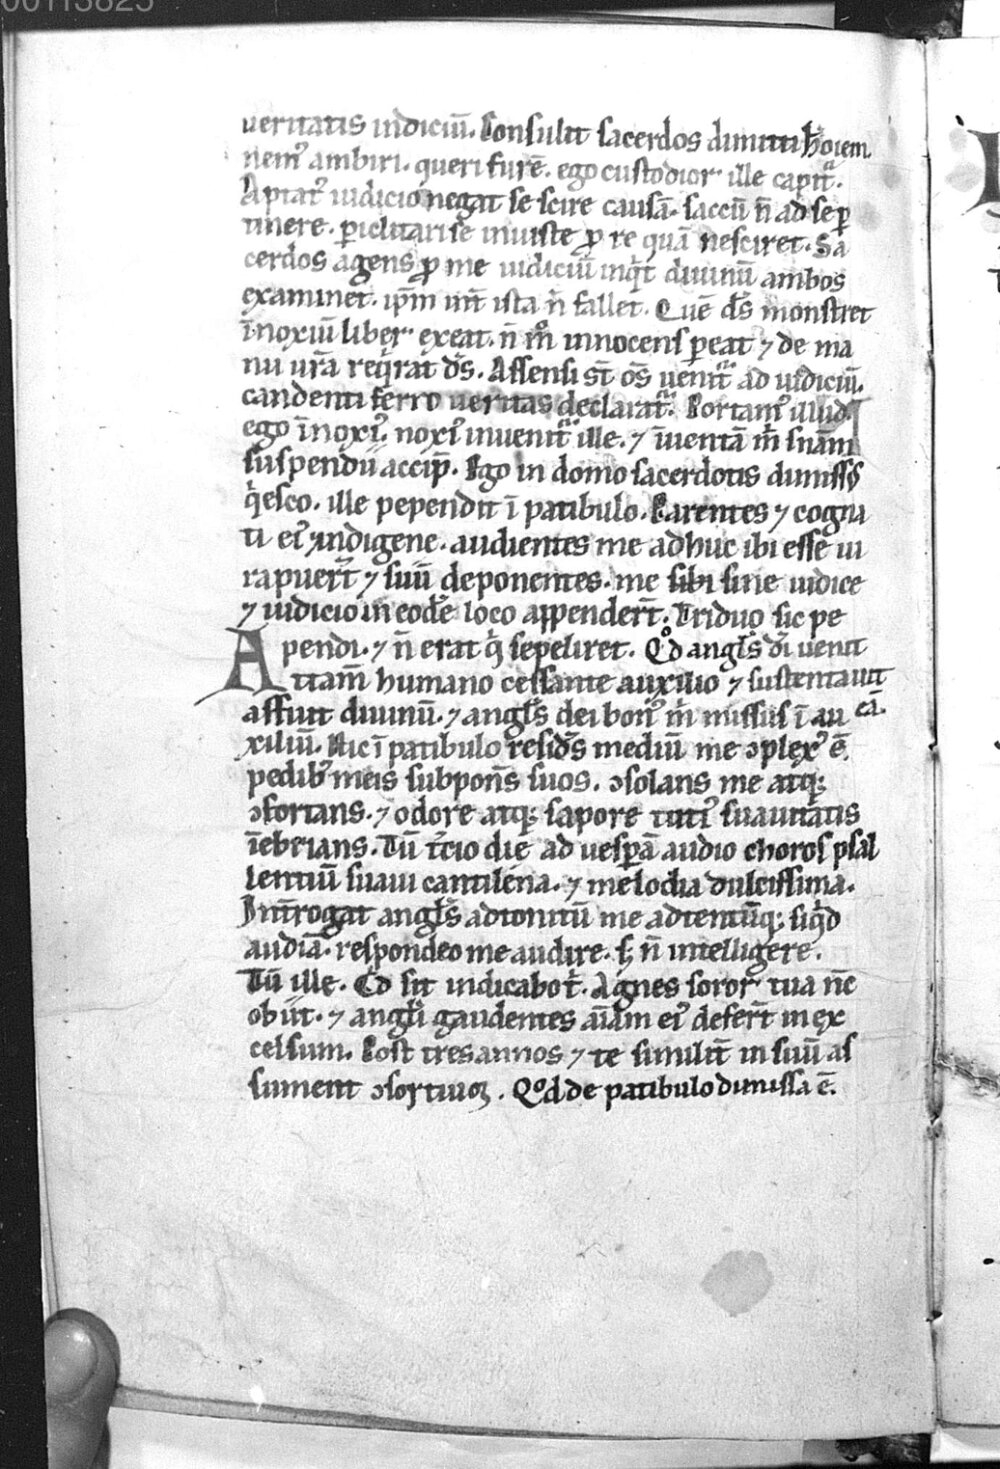 00113825
ueritatis indiciū. Consulit sacerdos dimitti hoiem
nemꝰ ambiri. queri furē. ego custodior ille capit᷑.
Aptatꝰ iudicio negat se scire causā. saccū n̄ ad se ꝑ
tinere. ꝑiclitari se iniuste ꝓ re quā nesciret. Sa
cerdos agens ꝓ me iudiciū inqͥt diuinū ambos
examinet. ip̄m nīt ista n̄ fallet. Quē ds̄ monstret
īnoxiū liber exeat. n̄ m̊ innocens ꝑeat ⁊ de ma
nu ur̄a reqͥrat ds̄. Assensi st̄ os̄ uenit᷑ ad iudiciū.
candenti ferro ueritas declarat᷑. Portamꝰ illud.
ego īnoxiꝰ. noxiꝰ inuenit᷑ ille. ⁊ īuentā
suspendii accip̄. Ego in domo sacerdotis dimissꝰ
qͥesco. ille pependit ī patibulo. Parentes ⁊ cogna
ti eiꝰ ⁊ indigene. audientes me adhuc ibi esse ui
rapuer̄t ⁊ suū deponentes. me sibi sine iudice
⁊ iudicio in eodē loco appender̄t. Triduo sic pe
pendi. ⁊ n̄ erat qͥ sepeliret. Qd̊ angls̄ di uenit
Attam̄ humano cessante auxilio ⁊ sustentauit
affuit diuinū. ⁊ angls̄ dei bonꝰ m̄ missus ī au eā.
xiliū. Hic ī patibulo resid̄s mediū me ꝯplexꝰ ē.
pedibꝰ meis subpon̄s suos. ꝯsolans me atq;
ꝯfortans. ⁊ odore atq; sapore totiꝰ suauitatis
īebrians. Tū t̄cio die ad uesꝑā audio choros psal
lentiū suaui cantilena. ⁊ melodia dulcissima.
Int̄rogat angls̄ adtonitū me adtentūq; siqͥd
audiā. respondeo me audire. s; n̄ intelligere.
Tū ille. Qͥd sit indicabo t̄. Agnes soror tua nc̄
obiit. ⁊ angli gaudentes aīam eiꝰ defer̄t in ex
celsum. Post tres annos ⁊ te similit̄ in suū as
sument ꝯsortiuꝫ. Qd̊ de patibulo dimissa ē.